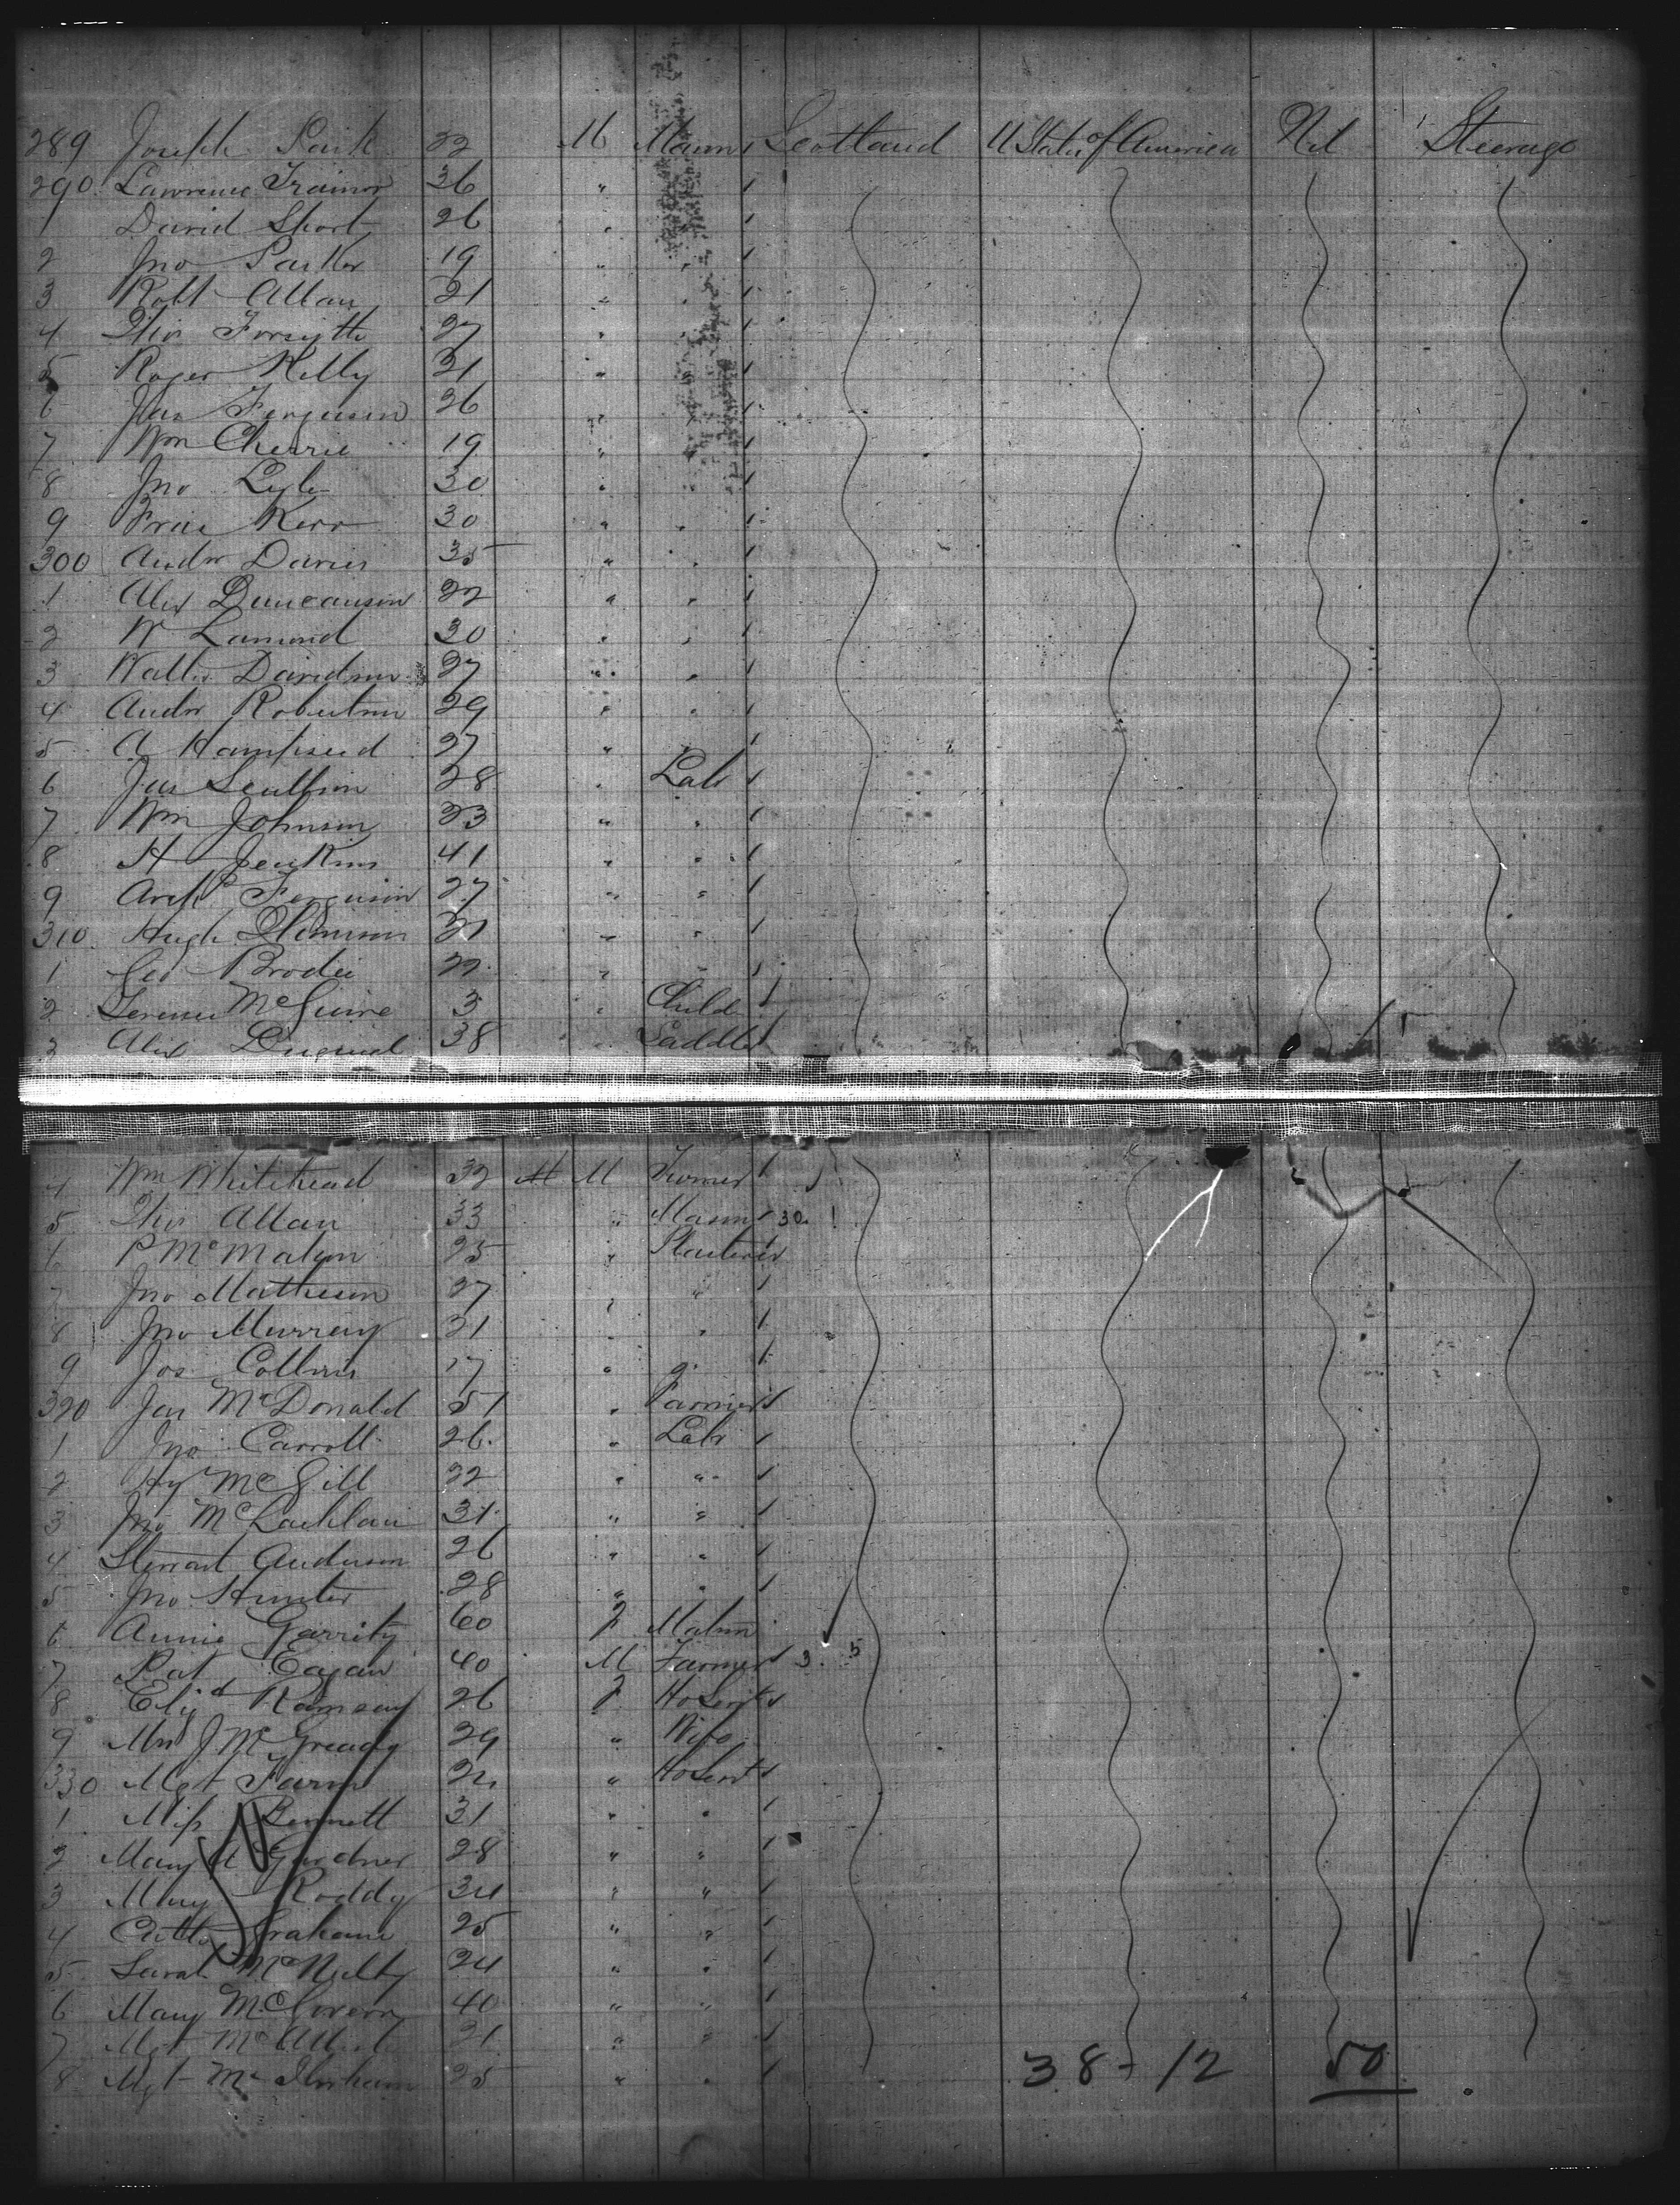 289 Joseph 32 M Mason Scotland U States of America Nil Steerage
290 Lawrence Trainor 36 "
1 David Short 26 "
2 Jno 19 " "
3 Robt Allan 21 " "
4 Thos Forsyth 27 " "
5 Roger Kelly 31 " "
6 Jas Ferguson 26 "
7 Wm Cherrie 19 "
8 Jno Lyle 30 "
9 Kerr 30 " "
300 Andw Davies 35 " "
1 Alex Duncanson 22 " "
2 W Lamond 30 " "
3 Walter Davidson 27 " "
4 Andw Robertson 29 " "
5 A 27 " "
6 Jas Scullion 28 " Labr
7 Wm Johnson 33 " "
8 H Jenkins 41 " "
9 Archd Ferguson 27 " "
310 Hugh 31 " "
1 Geo Brodie 22 " "
2 Terence McGuire 3 " Child
3 Alex Duguid 38 " Saddler
4 Wm Whitehead 32 M
5 Thos Allan 33 " Mason 30
6 P McMahon 25 " Plasterer
7 Jno Matheson 27 " "
8 Jno Murray 21 " "
9 Jos Collins 17 "
320 Jas McDonald 51 " Farmer
1 Jno Carroll 26 " Labr
2 Hy McGill 22 " "
3 Jno McLachlan 31 " "
4 Stewart Anderson 26 " "
5 Jno Hunter 28 " "
6 Annie Garrity 60 F Matron
7 Pat Eagan 40 M Farmer 3 5
8 Elizd Ramsay 26 F Ho Servt
9 Mrs J McGready 29 " Wife
330 Mgt 24 " Ho Servt
1 Miss Bennett 31 " "
2 Mary A Gardner 28 " "
3 Mary Roddy 34 " "
4 Cath Graham 25 " "
5 Sarah McNulty 24 " "
6 Mary McGovern 40 " "
7 Mgt 21 " "
8 Mgt 25 " "
38 - 12 50